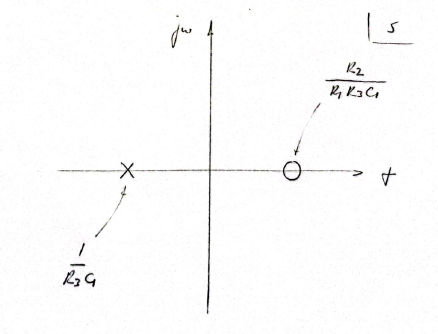 jω
s
R2
R1 R3 C1
σ
1
R3 C1